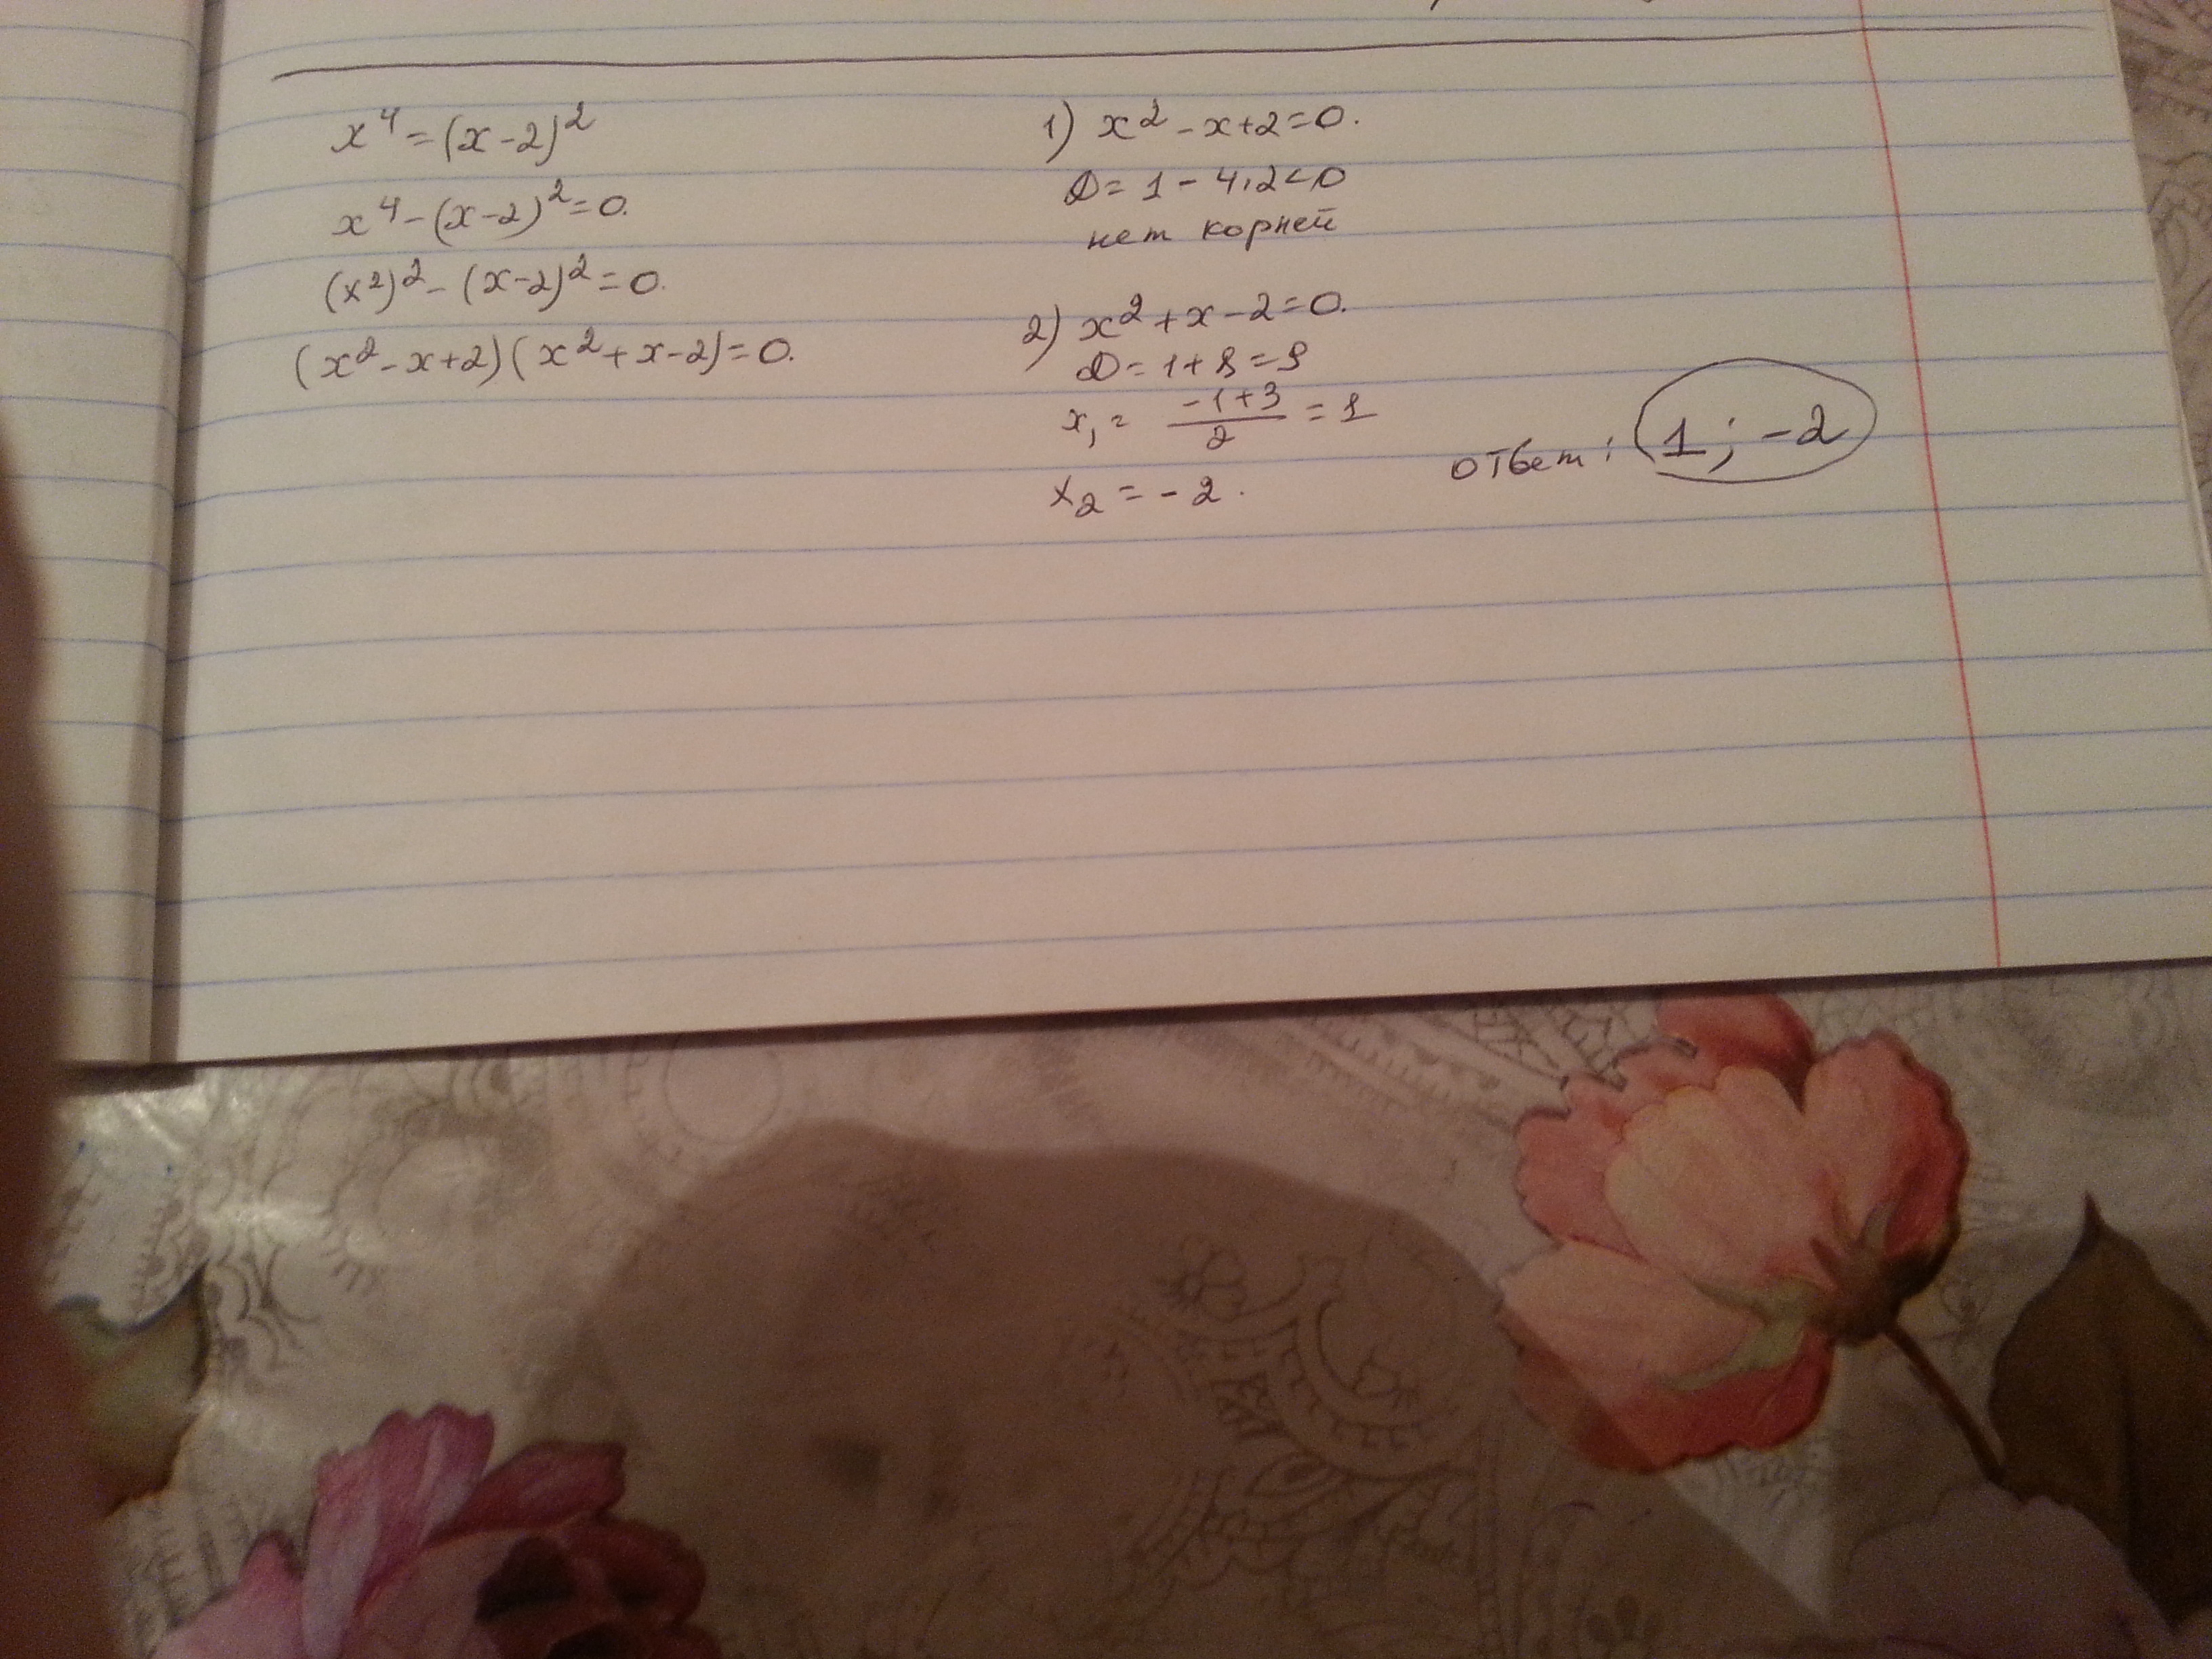 x⁴=(x-2)²
x⁴-(x-2)²=0.
(x²)²-(x-2)²=0.
(x²-x+2)(x²+x-2)=0.
1) x²-x+2=0.
D=1-4·2<0
нет корней
2) x²+x-2=0.
D=1+8=9
x₁= (-1+3)/2 =1
x₂=-2.
ответ: 1; -2